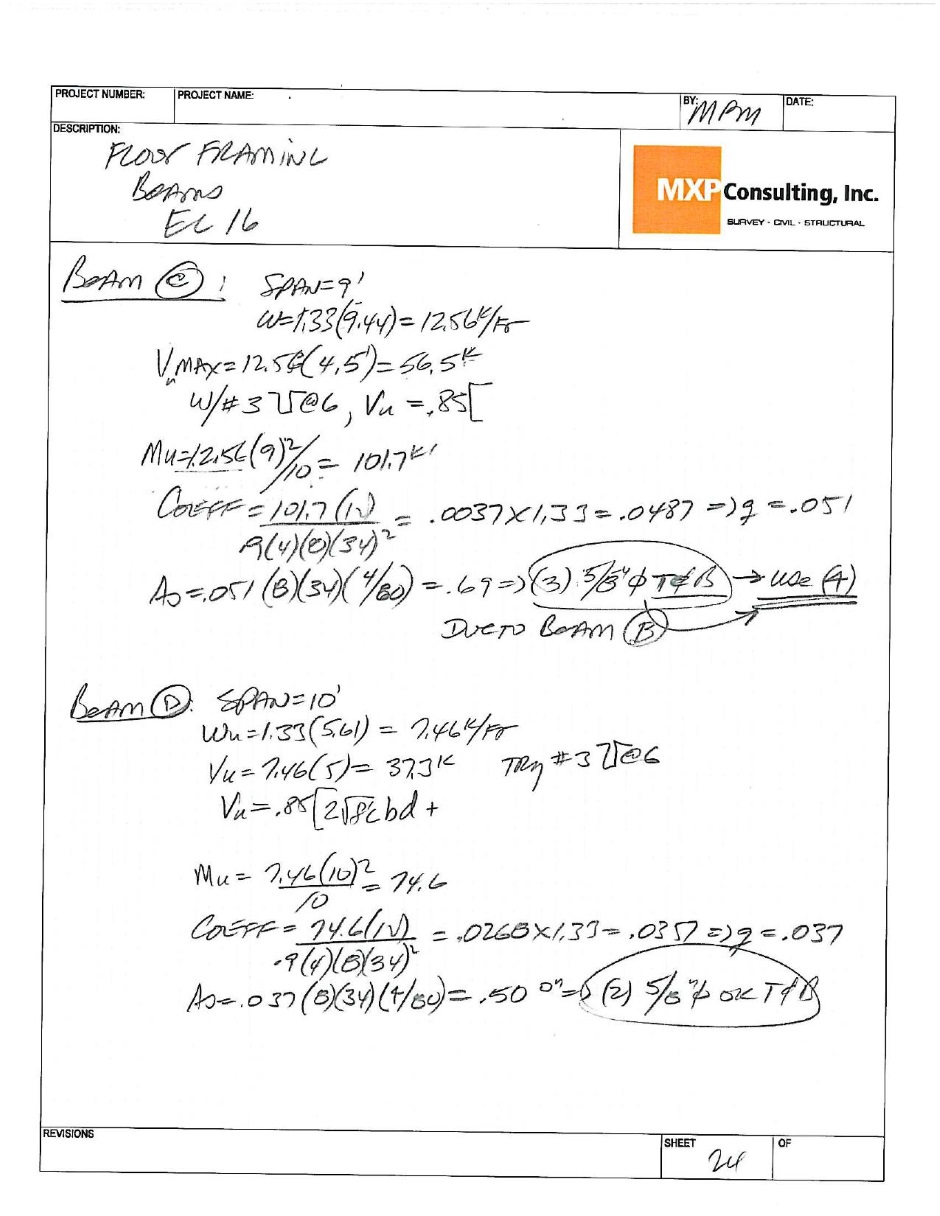 PROJECT NUMBER: PROJECT NAME: BY: MPM DATE:
DESCRIPTION:
FLOOR FRAMING
BEAMS
EL 16
MXP Consulting, Inc.
SURVEY - CIVIL - STRUCTURAL
BEAM (C): SPAN=9'
W=1.33(9.44)=12.56K/FT
VuMAX=12.56(4.5')=56.5K
W/#3 @6, Vu=.85[
Mu=12.56(9)²/10=101.7K'
COEFF=101.7(12)/.9(4)(8)(34)²=.0037X1.33=.0487=>q=.051
As=.051(8)(34)(4/80)=.69=>(3) 5/8"φ T&B → USE (4)
DUE TO BEAM (B)
BEAM (D): SPAN=10'
Wu=1.33(5.61)=7.46K/FT
Vu=7.46(5)=37.3K TRY #3 @6
Vu=.85[2√f'c bd +
Mu=7.46(10)²/10=74.6
COEFF=74.6(12)/.9(4)(8)(34)²=.0268X1.33=.0357=>q=.037
As=.037(8)(34)(4/80)=.50 □"=>(2) 5/8"φ OK T&B
REVISIONS
SHEET 24 OF